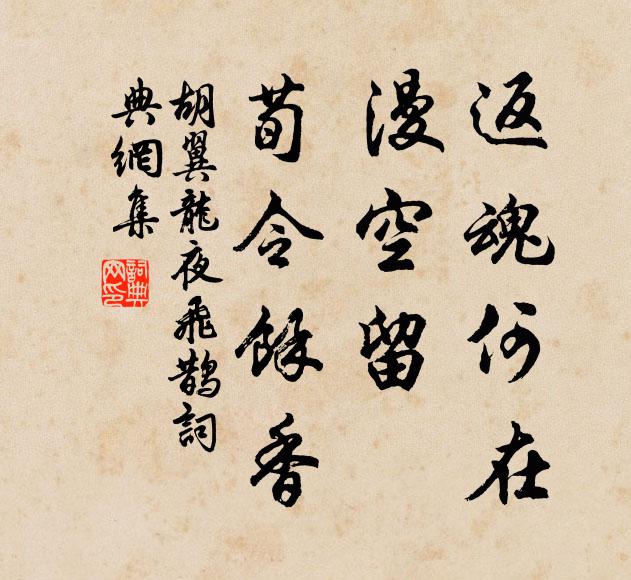 返魂何在
漫空留
荀令餘香
胡翼龍夜飛鵲詞
典網集
詞典網印